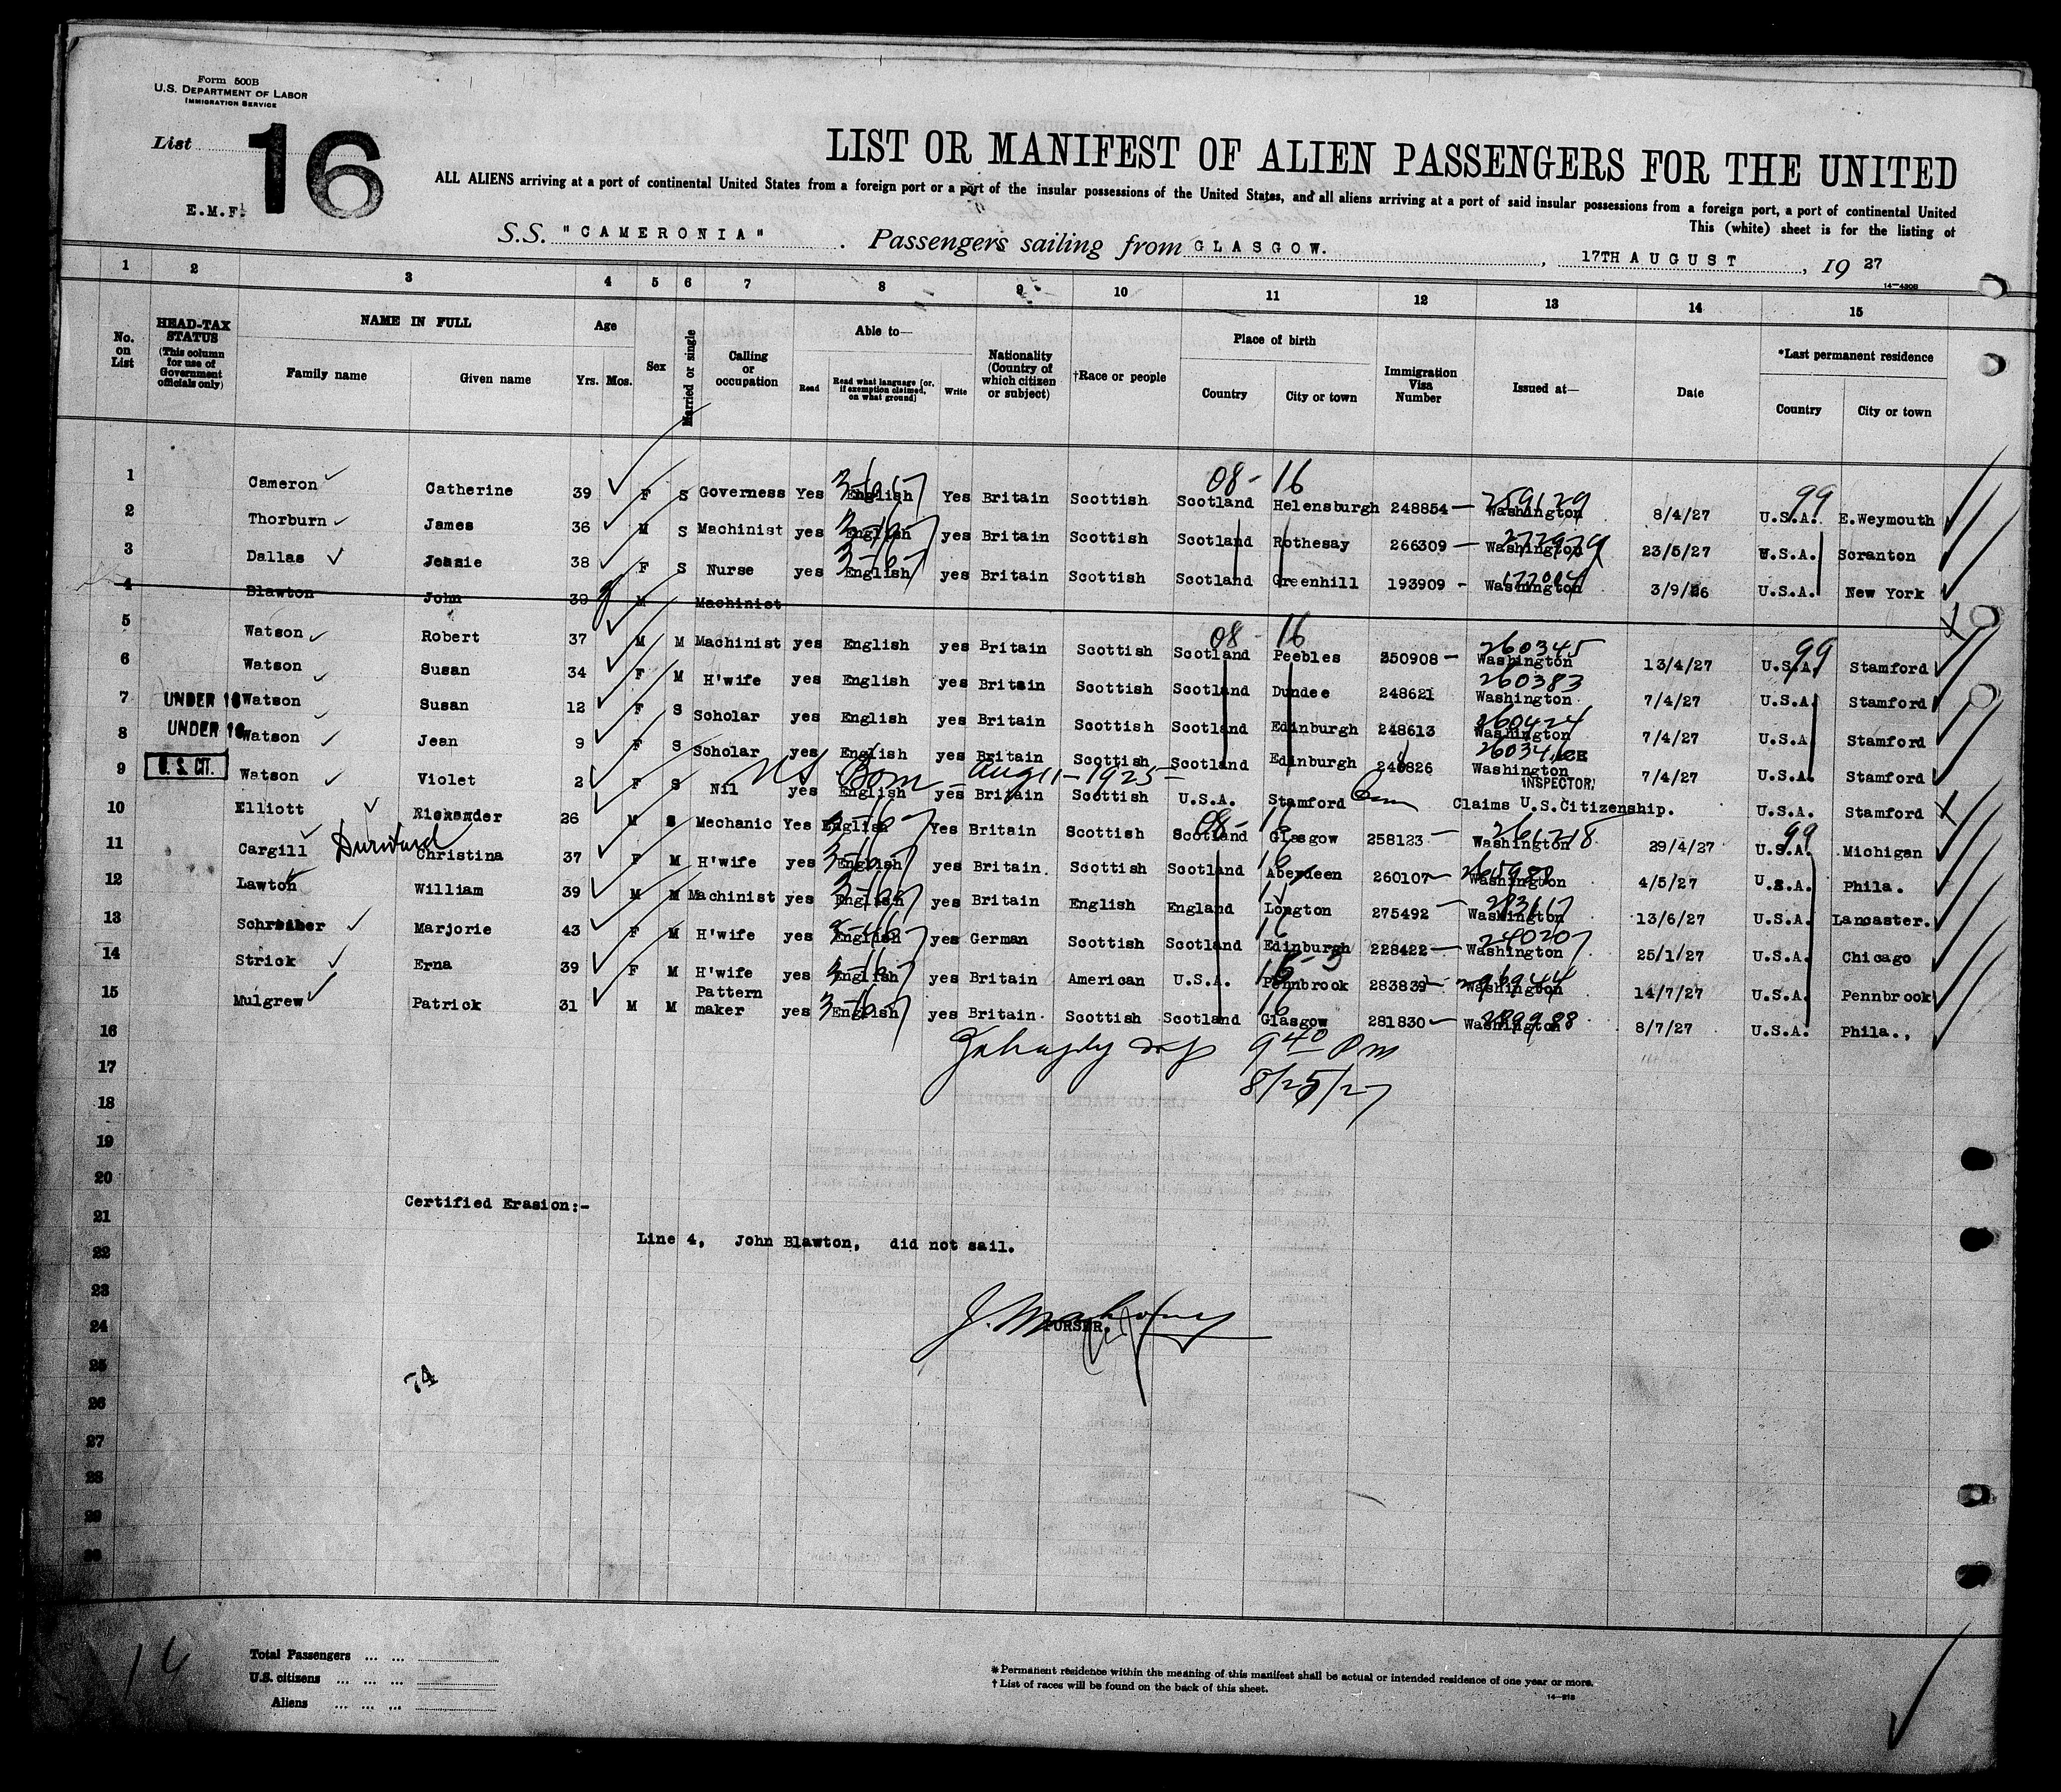 Form 500B
U.S. DEPARTMENT OF LABOR
IMMIGRATION SERVICE
List 16
E.M.F.
LIST OR MANIFEST OF ALIEN PASSENGERS FOR THE UNITED
ALL ALIENS arriving at a port of continental United States from a foreign port or a port of the insular possessions of the United States, and all aliens arriving at a port of said insular possessions from a foreign port, a port of continental United
This (white) sheet is for the listing of
S.S. "CAMERONIA". Passengers sailing from GLASGOW., 17TH AUGUST, 19 27
14—4308
1 2 3 4 5 6 7 8 9 10 11 12 13 14 15
No. on List
HEAD-TAX STATUS (This column for use of Government officials only)
NAME IN FULL
Family name Given name
Age
Yrs. Mos.
Sex
Married or single
Calling or occupation
Able to—
Read Read what language [or, if exemption claimed, on what ground] Write
Nationality (Country of which citizen or subject)
†Race or people
Place of birth
Country City or town
Immigration Visa Number
Issued at—
Date
*Last permanent residence
Country City or town
08 - 16 259129 99
1 Cameron Catherine 39 F S Governess Yes English Yes Britain Scottish Scotland Helensburgh 248854 Washington 8/4/27 U.S.A. E.Weymouth
2 Thorburn James 36 M S Machinist yes English yes Britain Scottish Scotland Rothesay 266309 Washington 23/5/27 U.S.A. Scranton
3 Dallas Jennie 38 F S Nurse yes English yes Britain Scottish Scotland Greenhill 193909 Washington 3/9/26 U.S.A. New York
4 Blawton John 39 M Machinist
08 - 16 260345 99
5 Watson Robert 37 M M Machinist yes English yes Britain Scottish Scotland Peebles 250908 Washington 13/4/27 U.S.A. Stamford
260383
6 Watson Susan 34 F M H'wife yes English yes Britain Scottish Scotland Dundee 248621 Washington 7/4/27 U.S.A. Stamford
260424
7 UNDER 16 Watson Susan 12 F S Scholar yes English yes Britain Scottish Scotland Edinburgh 248613 Washington 7/4/27 U.S.A. Stamford
8 UNDER 16 Watson Jean 9 F S Scholar yes English yes Britain Scottish Scotland Edinburgh Washington 7/4/27 U.S.A. Stamford
US Born - Aug 11 - 1925 - INSPECTOR
9 U. S. CIT. Watson Violet 2 F S Nil yes English yes Britain Scottish U.S.A. Stamford Claims U.S.Citizenship. U.S.A. Stamford
08 - 16 99
10 Elliott 26 M S Mechanic Yes English Yes Britain Scottish Scotland Glasgow 258123 Washington 29/4/27 U.S.A. Michigan
11 Cargill Durward Christina 37 F M H'wife yes English yes Britain. Scottish Scotland Aberdeen 260107 Washington 4/5/27 U.S.A. Phila.
12 Lawton William 39 M M Machinist yes English yes Britain English England Longton 275492 Washington 13/6/27 U.S.A. Lancaster.
240207
13 Schreiber Marjorie 43 F M H'wife yes English yes German Scottish Scotland Edinburgh 228422 Washington 25/1/27 U.S.A. Chicago
14 Strick Erna 39 F M H'wife yes English yes Britain American U.S.A. Pennbrook 283839 Washington 14/7/27 U.S.A. Pennbrook
15 Mulgrew Patrick 31 M M Pattern maker yes English yes Britain. Scottish Scotland Glasgow 281830 Washington 8/7/27 U.S.A. Phila.,
16
9 40 PM
17
8/25/27
18
19
20
Certified Erasion:-
21
Line 4, John Blawton, did not sail.
22
23
24
PURSER.
25
74
26
27
28
29
30
16
Total Passengers
U.S. citizens
Aliens
* Permanent residence within the meaning of this manifest shall be actual or intended residence of one year or more.
† List of races will be found on the back of this sheet.
14—313